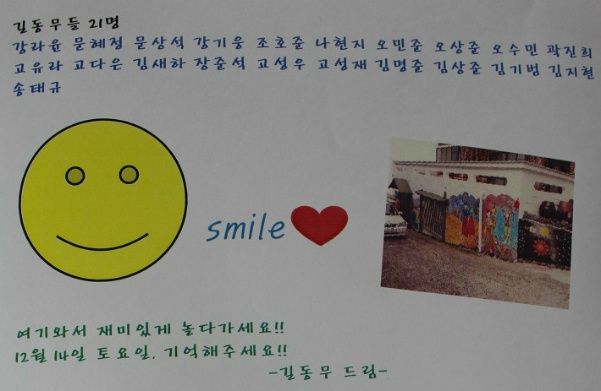 길동무들 21명
강라윤 문혜정 문상석 강기웅 조호준 나현지 오민준 오상준 오수민 곽진희
고유라 고다은 김새하 장준석 고성우 고성재 김명준 김상준 김기범 김지현
송태규
smile
여기와서 재미있게 놀다가세요!!
12월 14일 토요일, 기억해주세요!!
-길동무 드림-